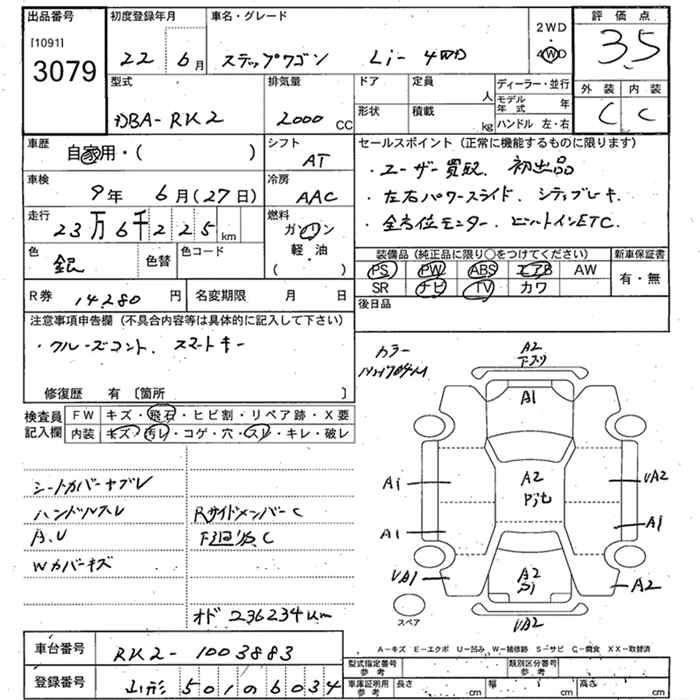 出品番号 初度登録年月 車名・グレード 評価点
[1091]
3079
22 6月 ステップワゴン Li- 4WD
2WD
・
4WD
35
型式 排気量 ドア 定員 ディーラー・並行 外装 内装
人 モデル年式 年 C C
DBA-RK2 2000CC 形状 積載 kg ハンドル 左・右
車歴 自家用・( ) シフト AT
セールスポイント(正常に機能するものに限ります)
・ユーザー買取、初出品
車検 9年 6月(27日) 冷房 AAC
・左右パワースライド、
走行 23万6千225km 燃料 ガソリン・軽・油 ( )
・全方位モニター、ビルトインETC.
色 銀 色替 色コード
装備品(純正品に限り〇をつけてください) 新車保証書
PS PW ABS エアB AW 有・無
SR ナビ TV カワ
R券 14,280円 名変期限 月 日
後日品
注意事項申告欄(不具合内容等は具体的に記入して下さい)
・クルーズコント、スマートキー
修復歴 有〔箇所 〕
カラー
検査員記入欄 FW キズ・飛石・ヒビ割・リペア跡・X要
内装 キズ・汚レ・コゲ・穴・スレ・キレ・破レ
A2
A1
シートカバーヤブレ
ハンドルスレ Rサイドメンバー C
A.U C
Wカバーキズ
オド 236234km
A2
A1
A1
UA2
A1
UA1
A2
A2
UA2
スペア
A-キズ E-エクボ U-凹み W-補修跡 S-サビ C-腐食 XX-取替済
車台番号 RK2-1003883
型式指定番号 参考 類別区分番号 参考
登録番号 山形 501 0 6034
車庫証明用 参考 長さ cm 幅 cm 高さ cm